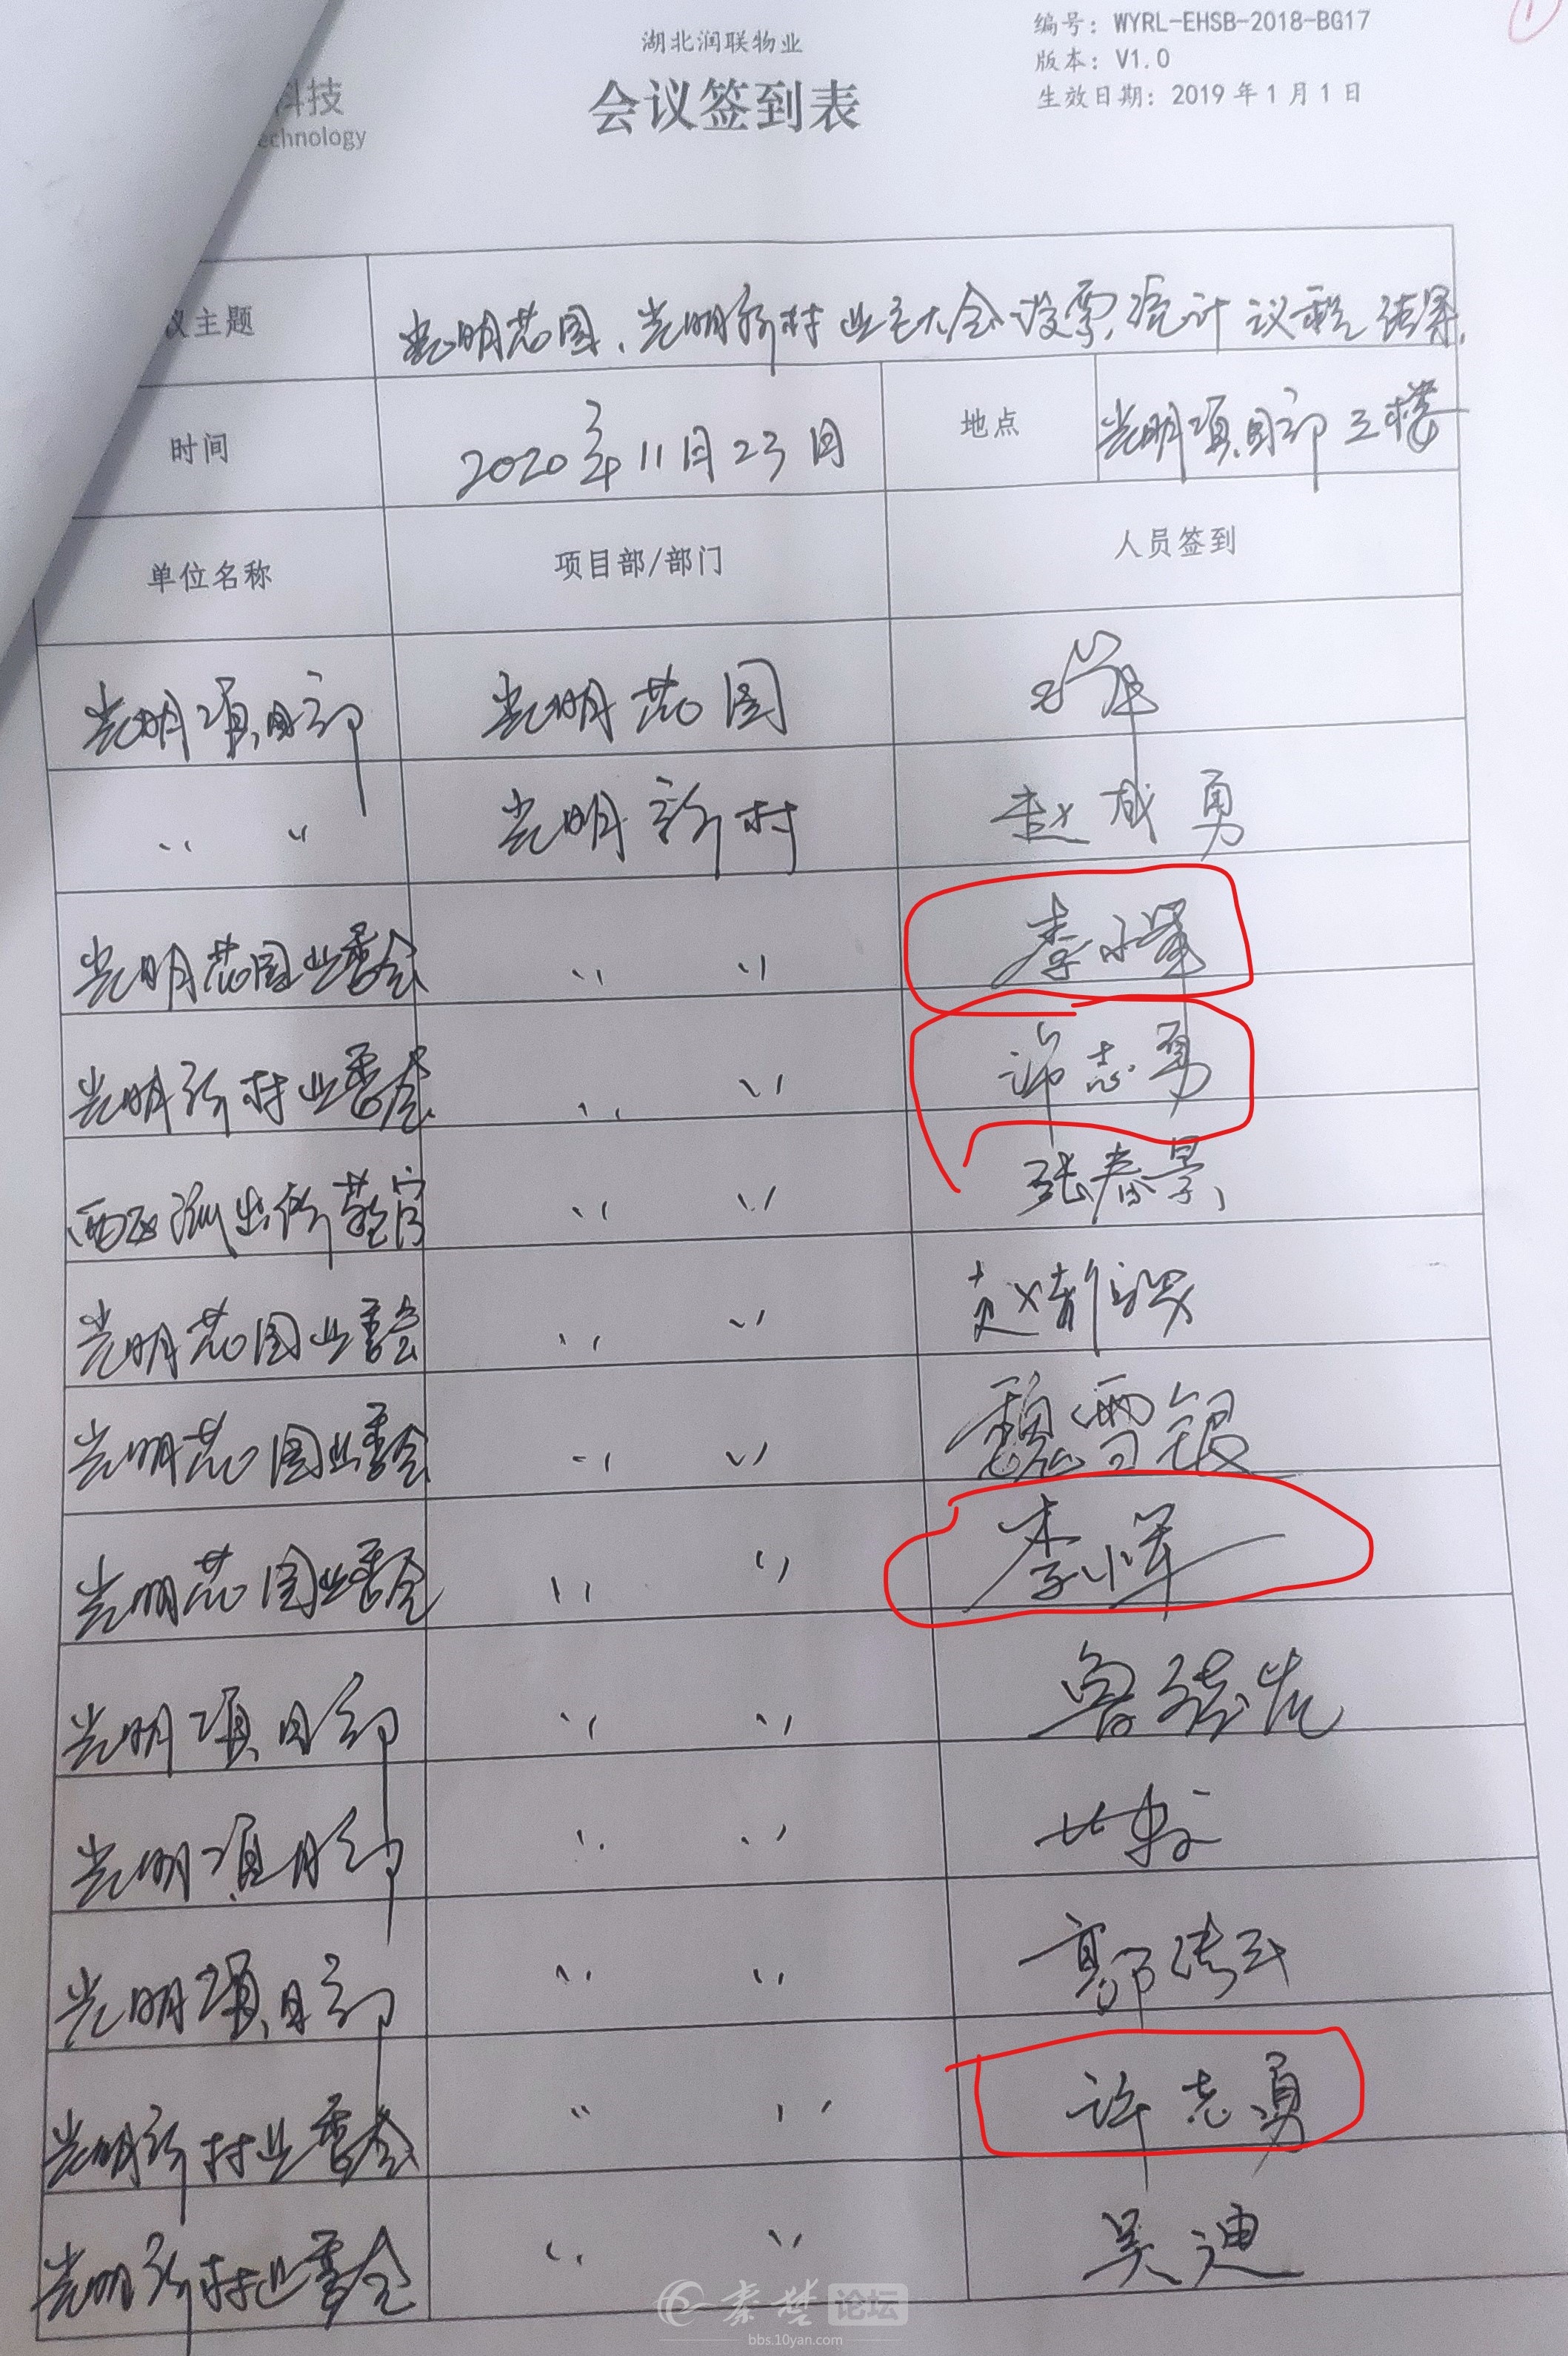 湖北润联物业
编号：WYRL-EHSB-2018-BG17
版本：V1.0
生效日期：2019年1月1日
科技
echnology
会议签到表
议主题 光明花园、光明新村业主大会投票统计议程结果.
时间 2020年11月23日 地点 光明项目部三楼
单位名称 项目部/部门 人员签到
光明项目部 光明花园
〃 〃 光明新村 赵成勇
光明花园业委会 〃 〃 李小军
光明新村业委会 〃 〃 许志勇
派出所警官 〃 〃 张春景
光明花园业委会 〃 〃 赵
光明花园业委会 〃 〃 魏雪银
光明花园业委会 〃 〃 李小军
光明项目部 〃 〃 鲁
光明项目部 〃 〃
光明项目部 〃 〃 郭
光明新村业委会 〃 〃 许志勇
光明新村业委会 〃 〃 吴迪
秦楚论坛
bbs.10yan.com